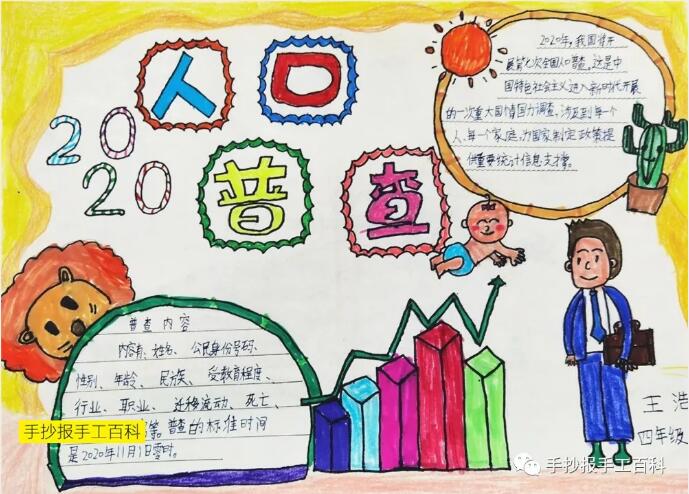 人口
2020
普查
2020年,我国将开
展第七次全国人口普查,这是中
国特色社会主义进入新时代开展
的一次重大国情国力调查,涉及到每一个
人、每个家庭,为国家制定政策提
供重要统计信息支撑。
普查内容
内容有:姓名、公民身份号码、
性别、年龄、民族、受教育程度、
行业、职业、迁移流动、死亡、
等。普查的标准时间
是2020年11月1日零时。
手抄报手工百科
王浩
四年级
手抄报手工百科